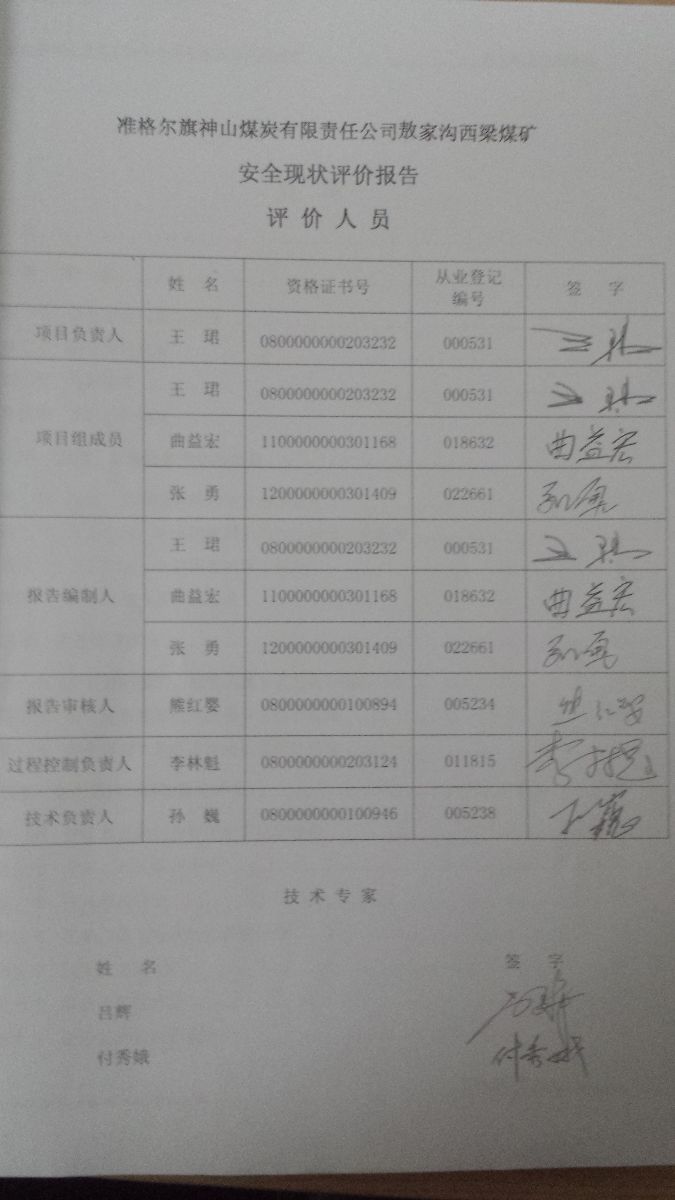 准格尔旗神山煤炭有限责任公司敖家沟西梁煤矿
安全现状评价报告
评 价 人 员
姓 名 资格证书号 从业登记编号 签 字
项目负责人 王 珺 0800000000203232 000531 王珺
项目组成员 王 珺 0800000000203232 000531 王珺
曲益宏 1100000000301168 018632 曲益宏
张 勇 1200000000301409 022661 张勇
报告编制人 王 珺 0800000000203232 000531 王珺
曲益宏 1100000000301168 018632 曲益宏
张 勇 1200000000301409 022661 张勇
报告审核人 熊红婴 0800000000100894 005234
过程控制负责人 李林魁 0800000000203124 011815 李林魁
技术负责人 孙 巍 0800000000100946 005238 孙巍
技 术 专 家
姓 名 签 字
吕辉
付秀娥 付秀娥